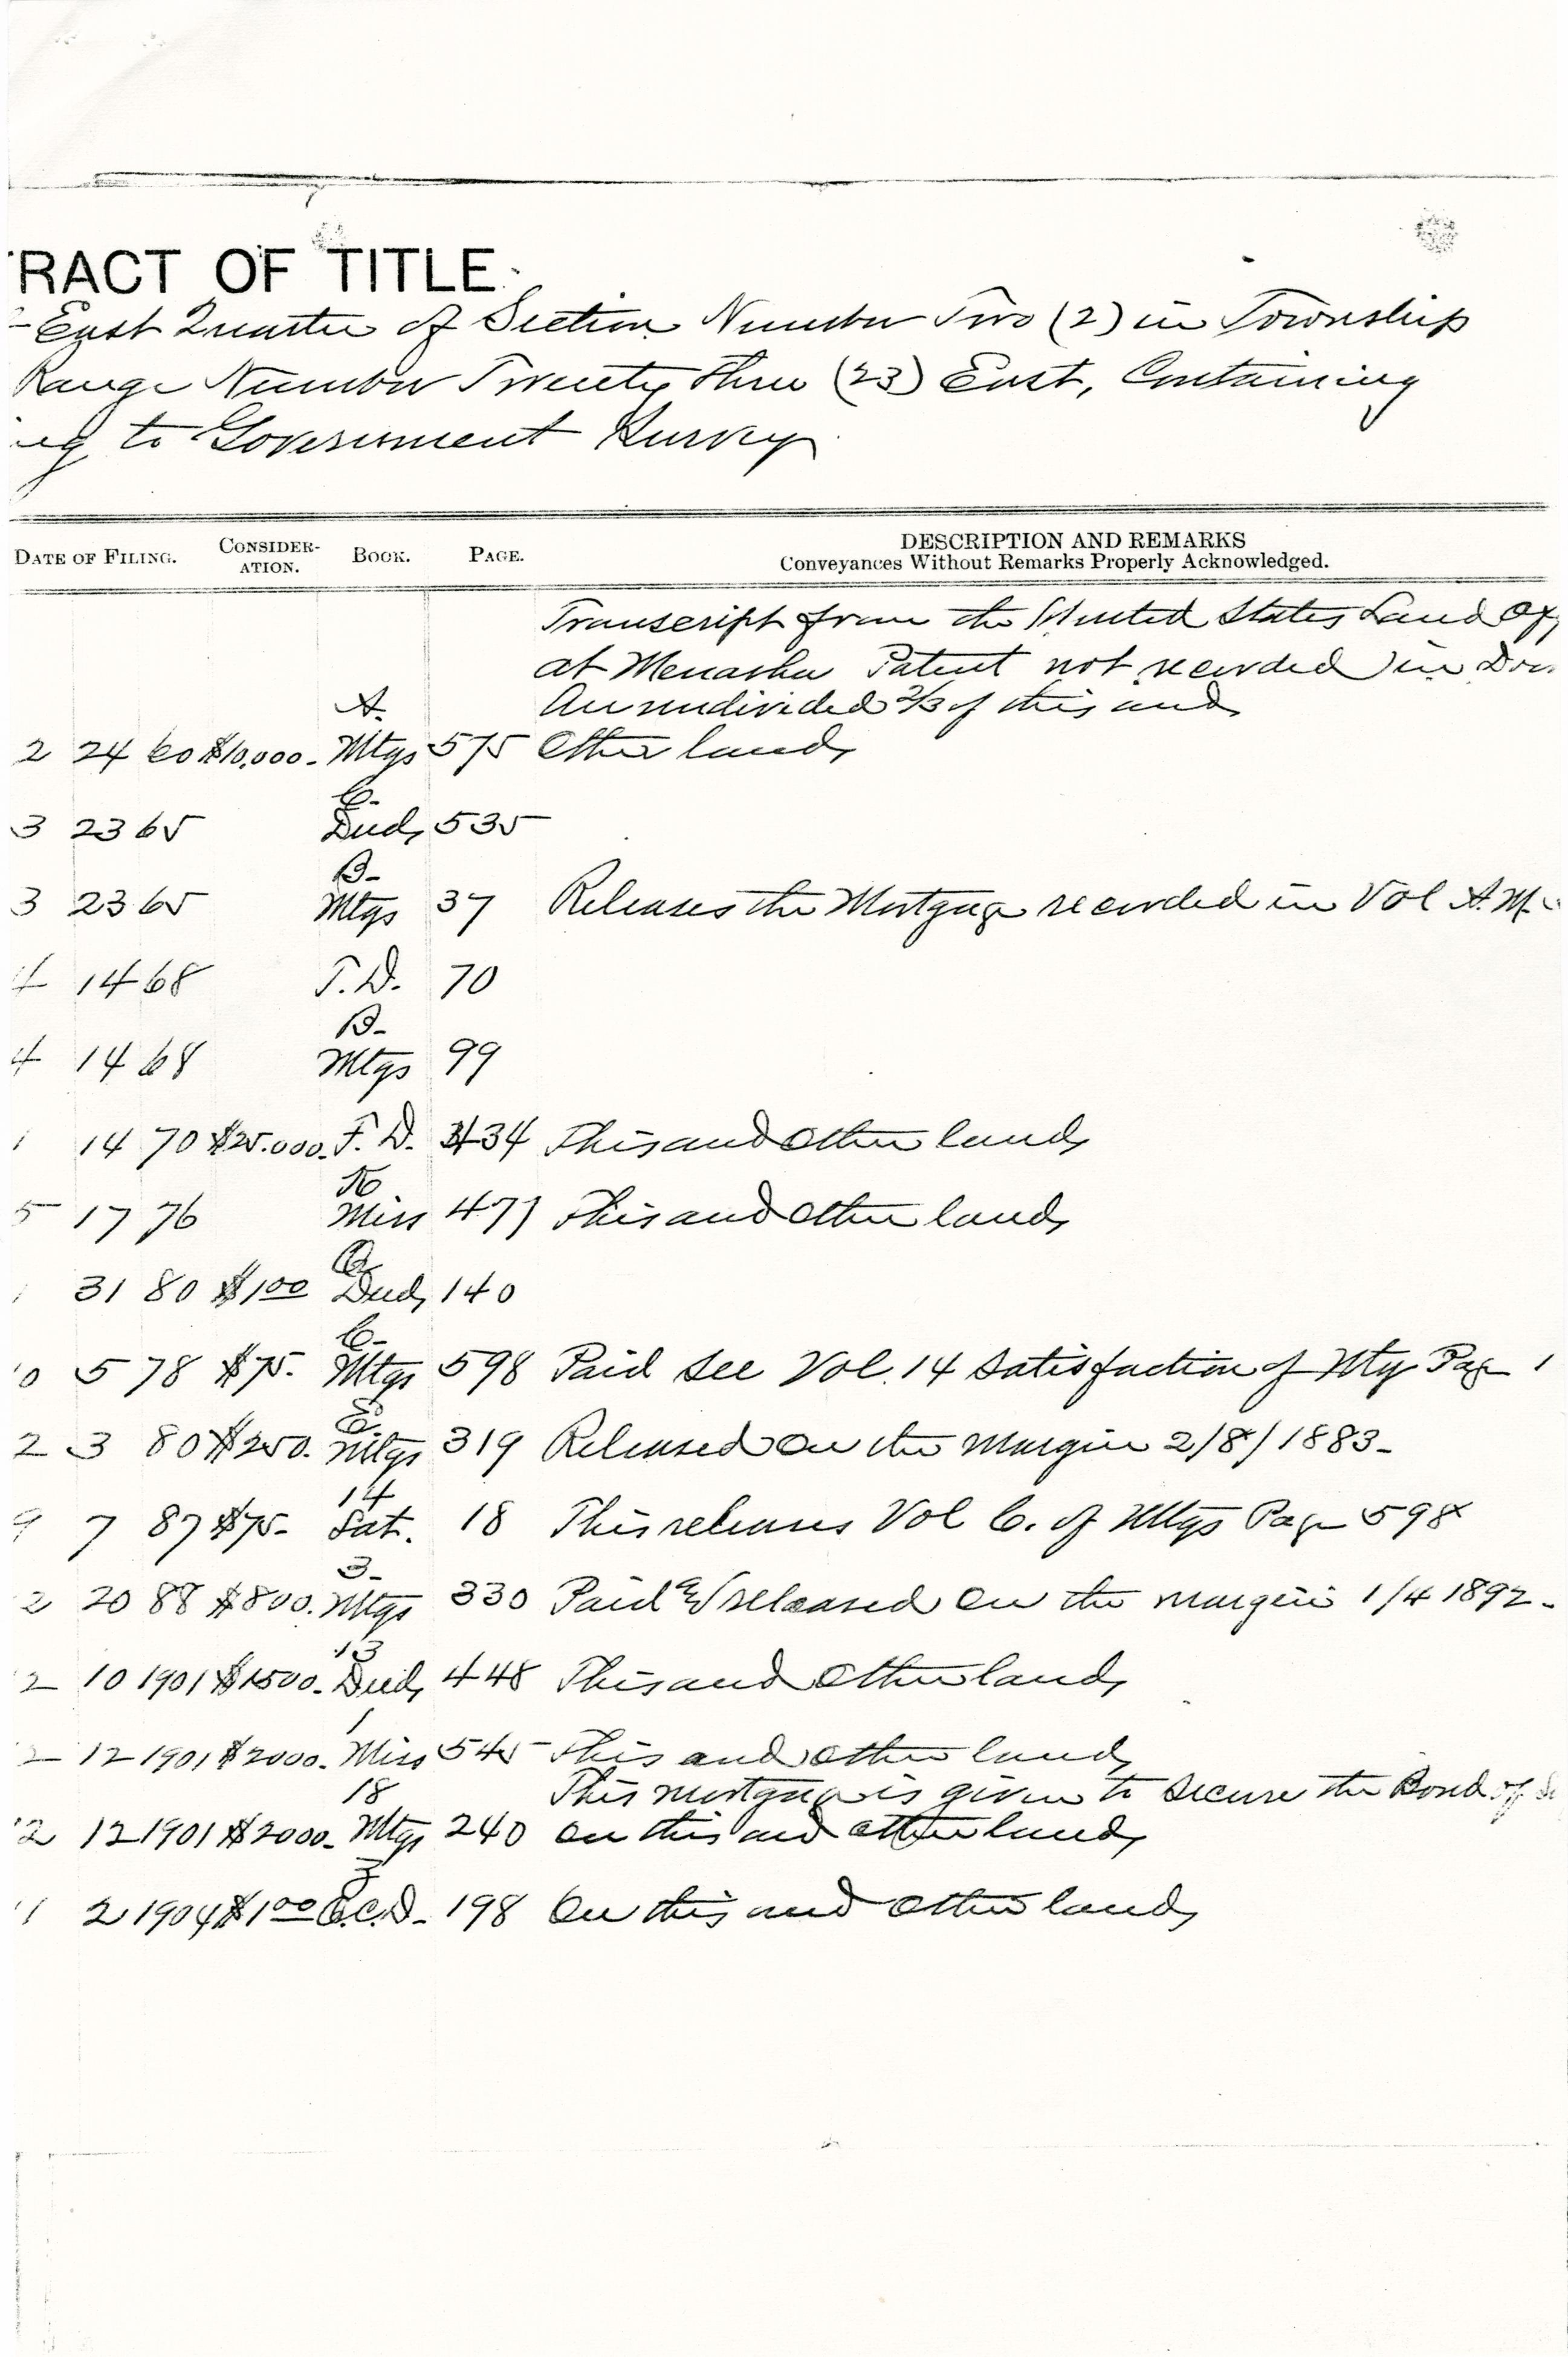 RACT OF TITLE.
-East Quarter of Section Number Two (2) in Township
Range Number Twenty Three (23) East, Containing
ing to Government Survey
DATE OF FILING. CONSIDER-ATION. BOOK. PAGE. DESCRIPTION AND REMARKS
Conveyances Without Remarks Properly Acknowledged.
Transcript from the United States Land Of
at Menasha Patent not recorded in
A. An undivided 2/3 of this and
2 24 60 $10,000.- Mtgs 575 Other lands
C.-
3 23 65 Deeds 535
B-
3 23 65 Mtgs 37 Releases the Mortgage recorded in Vol A. M.
4 14 68 T.D. 70
B-
4 14 68 Mtgs 99
1 14 70 $25.000.- F.D. 434 This and Other lands
Miss 471 This and Other lands
5 17 76
Q
1 31 80 $1.00 Deeds 140
C-
0 5 78 $75.- Mtgs 598 Paid See Vol. 14 Satisfaction of Mtg Page 1
2 3 80 $250. Mtgs 319 Released on the margin 2/8/1883-
14
9 7 87 $75- Sat. 18 This releases Vol C. of Mtgs Page 598
3-
2 20 88 $800. Mtgs 330 Paid & released on the margin 1/4 1892-
13
2 10 1901 $1500.- Deeds 448 This and Other lands
1
2 12 1901 $2000.- Miss 545 This and other lands
18 This mortgage is given to secure the Bond of
2 12 1901 $2000- Mtgs 240 on this and other lands
3
1 2 1904 $1.00 Q.C.D- 198 On this and Other lands